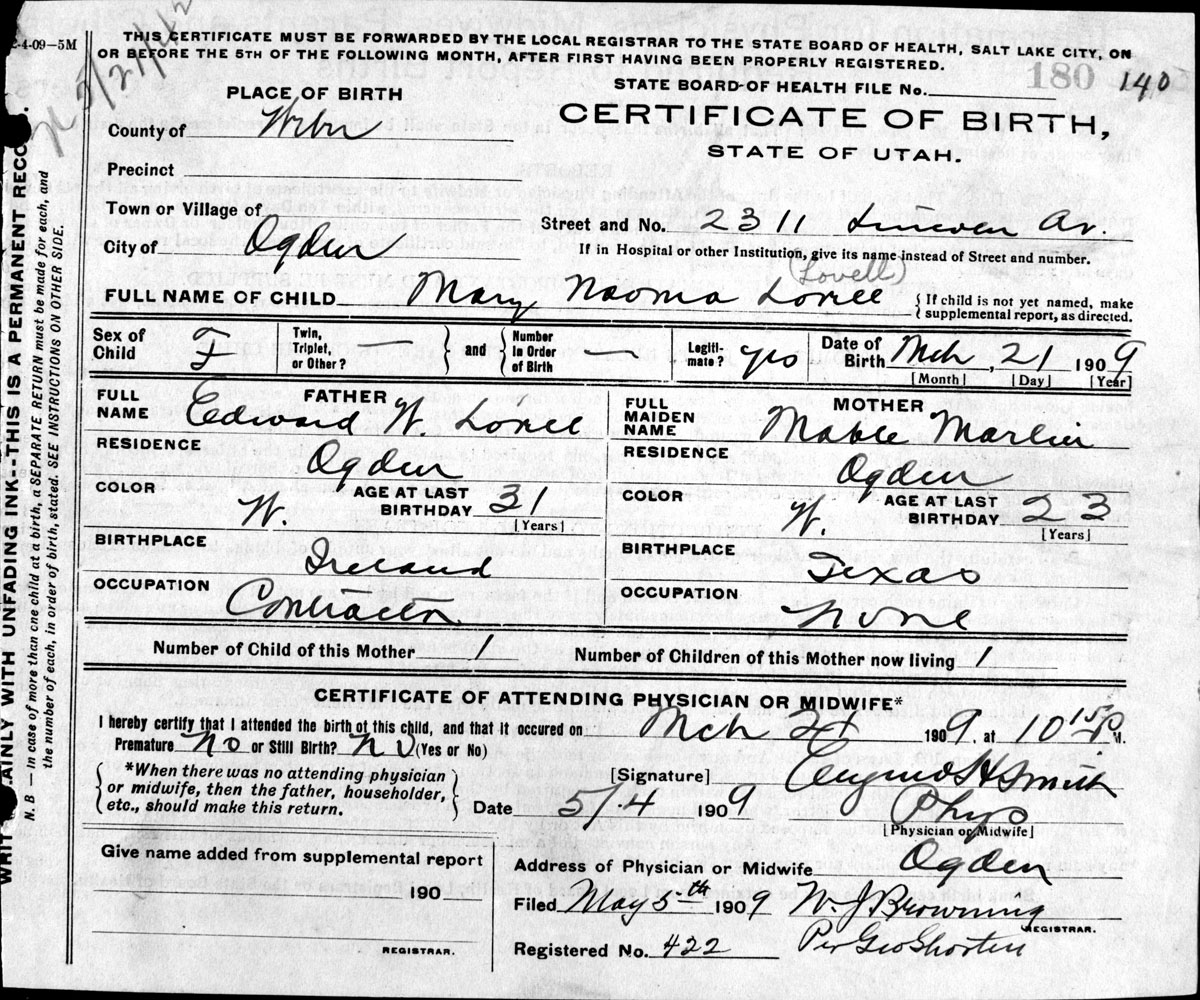 2-4-09-5M
THIS CERTIFICATE MUST BE FORWARDED BY THE LOCAL REGISTRAR TO THE STATE BOARD OF HEALTH, SALT LAKE CITY, ON
OR BEFORE THE 5TH OF THE FOLLOWING MONTH, AFTER FIRST HAVING BEEN PROPERLY REGISTERED.
180 140
STATE BOARD OF HEALTH FILE No.
PLACE OF BIRTH
CERTIFICATE OF BIRTH,
STATE OF UTAH.
County of Weber
Precinct
Town or Village of
Street and No. 2311 Lincoln Av.
City of Ogden
If in Hospital or other Institution, give its name instead of Street and number.
(Lovell)
FULL NAME OF CHILD Mary Naoma Lovell
{ If child is not yet named, make
supplemental report, as directed.
Sex of Child F
Twin, Triplet, or Other? — and Number in Order of Birth —
Legitimate? yes
Date of Birth Mch, 21 1909
[Month] [Day] [Year]
FATHER
FULL NAME Edward W. Lovell
RESIDENCE Ogden
COLOR W.
AGE AT LAST BIRTHDAY 31
[Years]
BIRTHPLACE Ireland
OCCUPATION Contractor
MOTHER
FULL MAIDEN NAME Mable Marler
RESIDENCE Ogden
COLOR W.
AGE AT LAST BIRTHDAY 23
[Years]
BIRTHPLACE Texas
OCCUPATION None
Number of Child of this Mother 1
Number of Children of this Mother now living 1
CERTIFICATE OF ATTENDING PHYSICIAN OR MIDWIFE*
I hereby certify that I attended the birth of this child, and that it occured on Mch 21 1909, at 10 15 P M.
Premature No or Still Birth? No (Yes or No)
{ *When there was no attending physician
or midwife, then the father, householder,
etc., should make this return. }
[Signature] H Smith
Date 5/4 1909
Phys
[Physician or Midwife]
Give name added from supplemental report
190
REGISTRAR.
Address of Physician or Midwife Ogden
Filed May 5th 1909 W. J. Browning
REGISTRAR.
Registered No. 422 Per Geo Shorten
WRITE PLAINLY WITH UNFADING INK-THIS IS A PERMANENT RECORD.
N. B — In case of more than one child at a birth, a SEPARATE RETURN must be made for each, and
the number of each, in order of birth, stated. SEE INSTRUCTIONS ON OTHER SIDE.